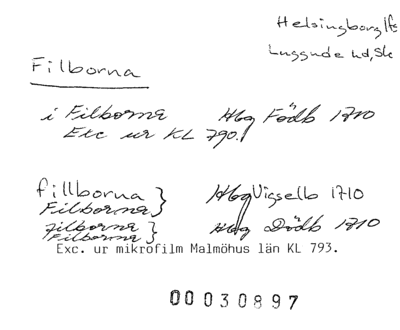 Helsingborg lfs
Luggude hd, Sk
Filborna
i Filborna Hbg Födb 1710
Exc ur KL 790.
fillborna } Hbg Vigselb 1710
Filborna
filborna } Hbg Dödb 1710
Filborna
Exc. ur mikrofilm Malmöhus län KL 793.
00030897